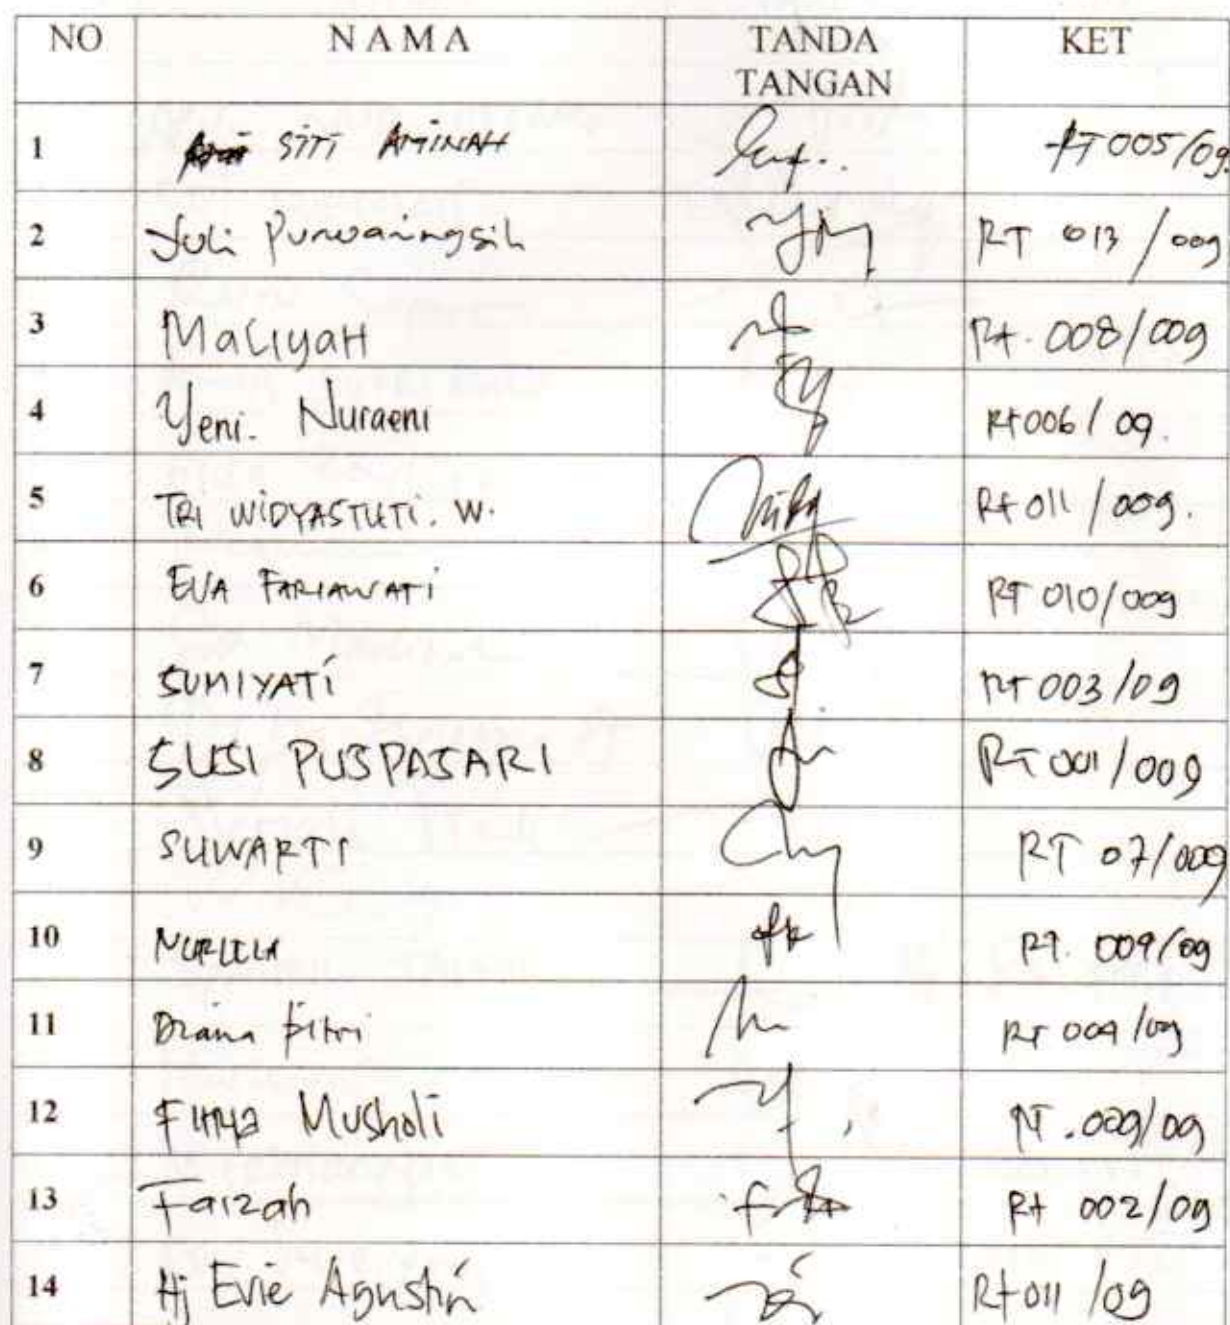 NO NAMA TANDA TANGAN KET
1 SITI AMINAH RT 005/09
2 Juli Purwaningsih RT 013 / 009
3 MaliyaH Rt. 008/009
4 Yeni. Nuraeni Rt 006 / 09.
5 TRI WIDYASTUTI. W. Rt 011 / 009.
6 EVA FARIAWATI RT 010/009
7 SUMIYATI RT 003/09
8 SUSI PUSPASARI RT 001/009
9 SUWARTI RT 07/009
10 NURLELA RT. 009/09
11 Diana Fitri RT 004/09
12 Musholi RT. 009/09
13 Faizah Rt 002/09
14 Hj Evie Agustin Rt 011 /09